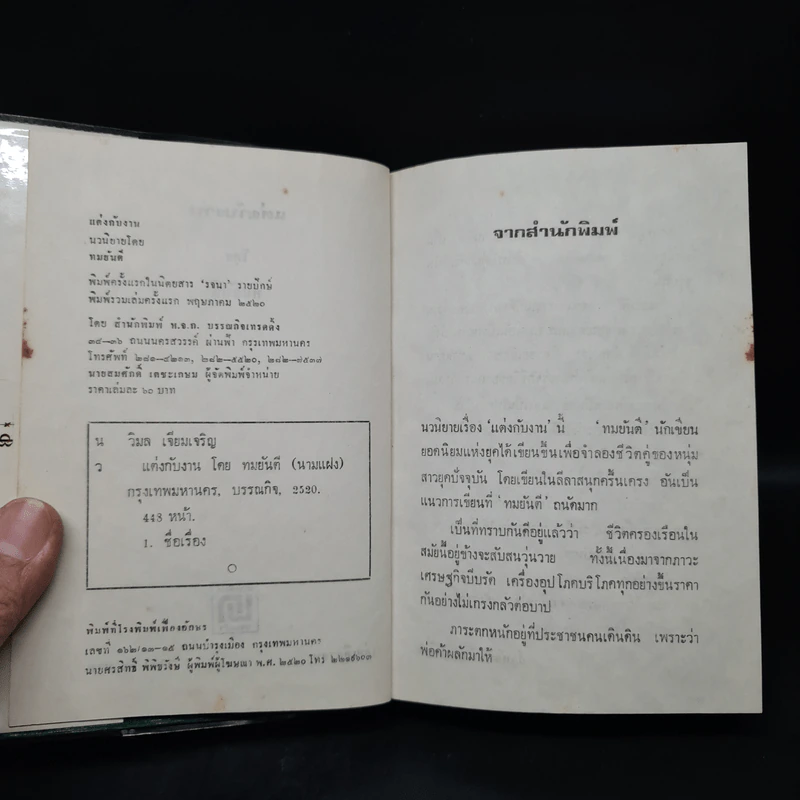 แต่งกับงาน
นวนิยายโดย
ทมยันตี
พิมพ์ครั้งแรกในนิตยสาร ‘รจนา’ รายปักษ์
พิมพ์รวมเล่มครั้งแรก พฤษภาคม ๒๕๒๐
โดย สำนักพิมพ์ ห.จ.ก. บรรณกิจเทรดดิ้ง
๓๔–๓๖ ถนนนครสวรรค์ ผ่านฟ้า กรุงเทพมหานคร
โทรศัพท์ ๒๘๑–๔๒๑๓, ๒๘๒–๕๕๒๐, ๒๘๒–๗๕๓๗
นายสมศักดิ์ เตชะเกษม ผู้จัดพิมพ์จำหน่าย
ราคาเล่มละ ๖๐ บาท
น วิมล เจียมเจริญ
ว แต่งกับงาน โดย ทมยันตี (นามแฝง)
กรุงเทพมหานคร, บรรณกิจ, 2520.
448 หน้า.
1. ชื่อเรื่อง
พิมพ์ที่โรงพิมพ์เฟื่องอักษร
เลขที่ ๑๖๒/๑๓–๑๕ ถนนบำรุงเมือง กรุงเทพมหานคร
นายศรสิทธิ์ พิพิธรังษี ผู้พิมพ์ผู้โฆษณา พ.ศ. ๒๕๒๐ โทร ๒๒๑๙๖๐๓
จากสำนักพิมพ์
นวนิยายเรื่อง ‘แต่งกับงาน’ นี้ ‘ทมยันตี’ นักเขียน
ยอดนิยมแห่งยุคได้เขียนขึ้นเพื่อจำลองชีวิตคู่ของหนุ่ม
สาวยุคปัจจุบัน โดยเขียนในลีลาสนุกครื้นเครง อันเป็น
แนวการเขียนที่ ‘ทมยันตี’ ถนัดมาก
เป็นที่ทราบกันดีอยู่แล้วว่า ชีวิตครองเรือนใน
สมัยนี้อยู่ข้างจะสับสนวุ่นวาย ทั้งนี้เนื่องมาจากภาวะ
เศรษฐกิจบีบรัด เครื่องอุปโภคบริโภคทุกอย่างขึ้นราคา
กันอย่างไม่เกรงกลัวต่อบาป
ภาระตกหนักอยู่ที่ประชาชนคนเดินดิน เพราะว่า
พ่อค้าผลักมาให้